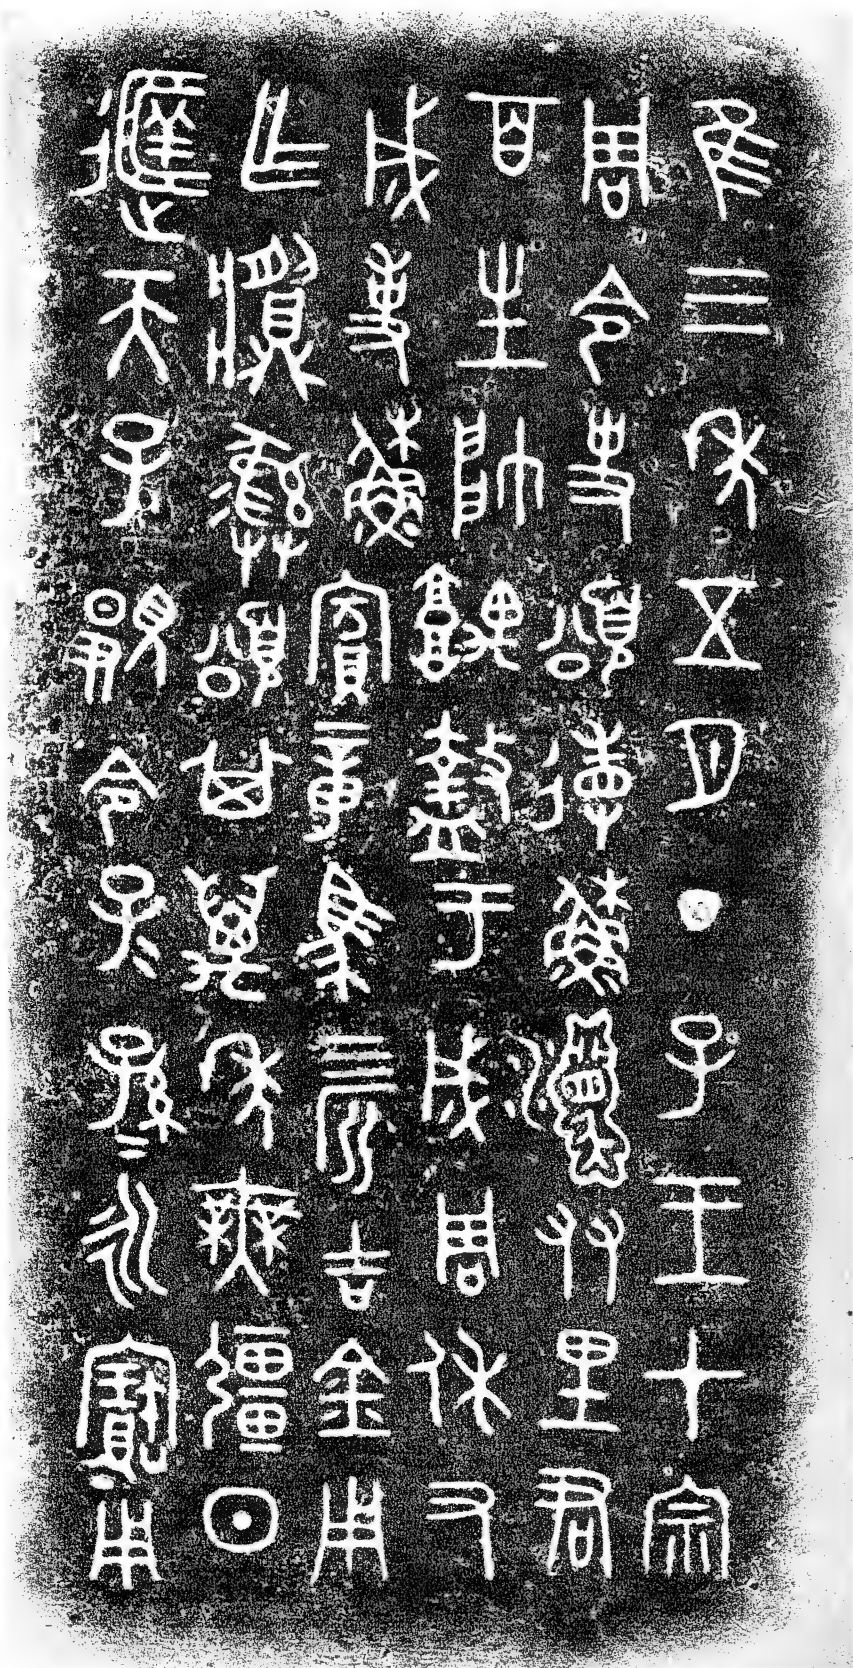 隹三年五月丁子王才宗
周令史頌省穌友里君
百生帥盩于成周休又
成事穌賓章馬四匹吉金用
乍𩰫彝頌其萬年無疆日
天子顯令子=孫=永寶用